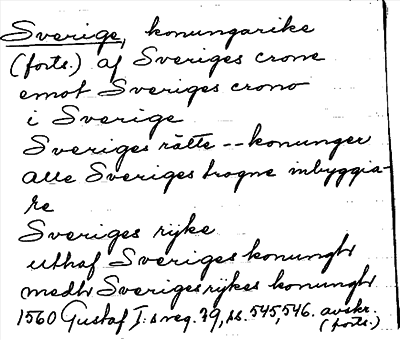 Sverige, konungarike
(forts.) af Sveriges crone
emot Sveriges crono
i Sverige
Sveriges rätte -- konunger
alle Sveriges trogne inbyggia-
re
Sveriges rijke
uthaf Sveriges konunghr
medhr Sveriges rijkes konunghr
1560 Gustaf I:s reg. 29, ss. 545, 546. avskr.
(forts.)